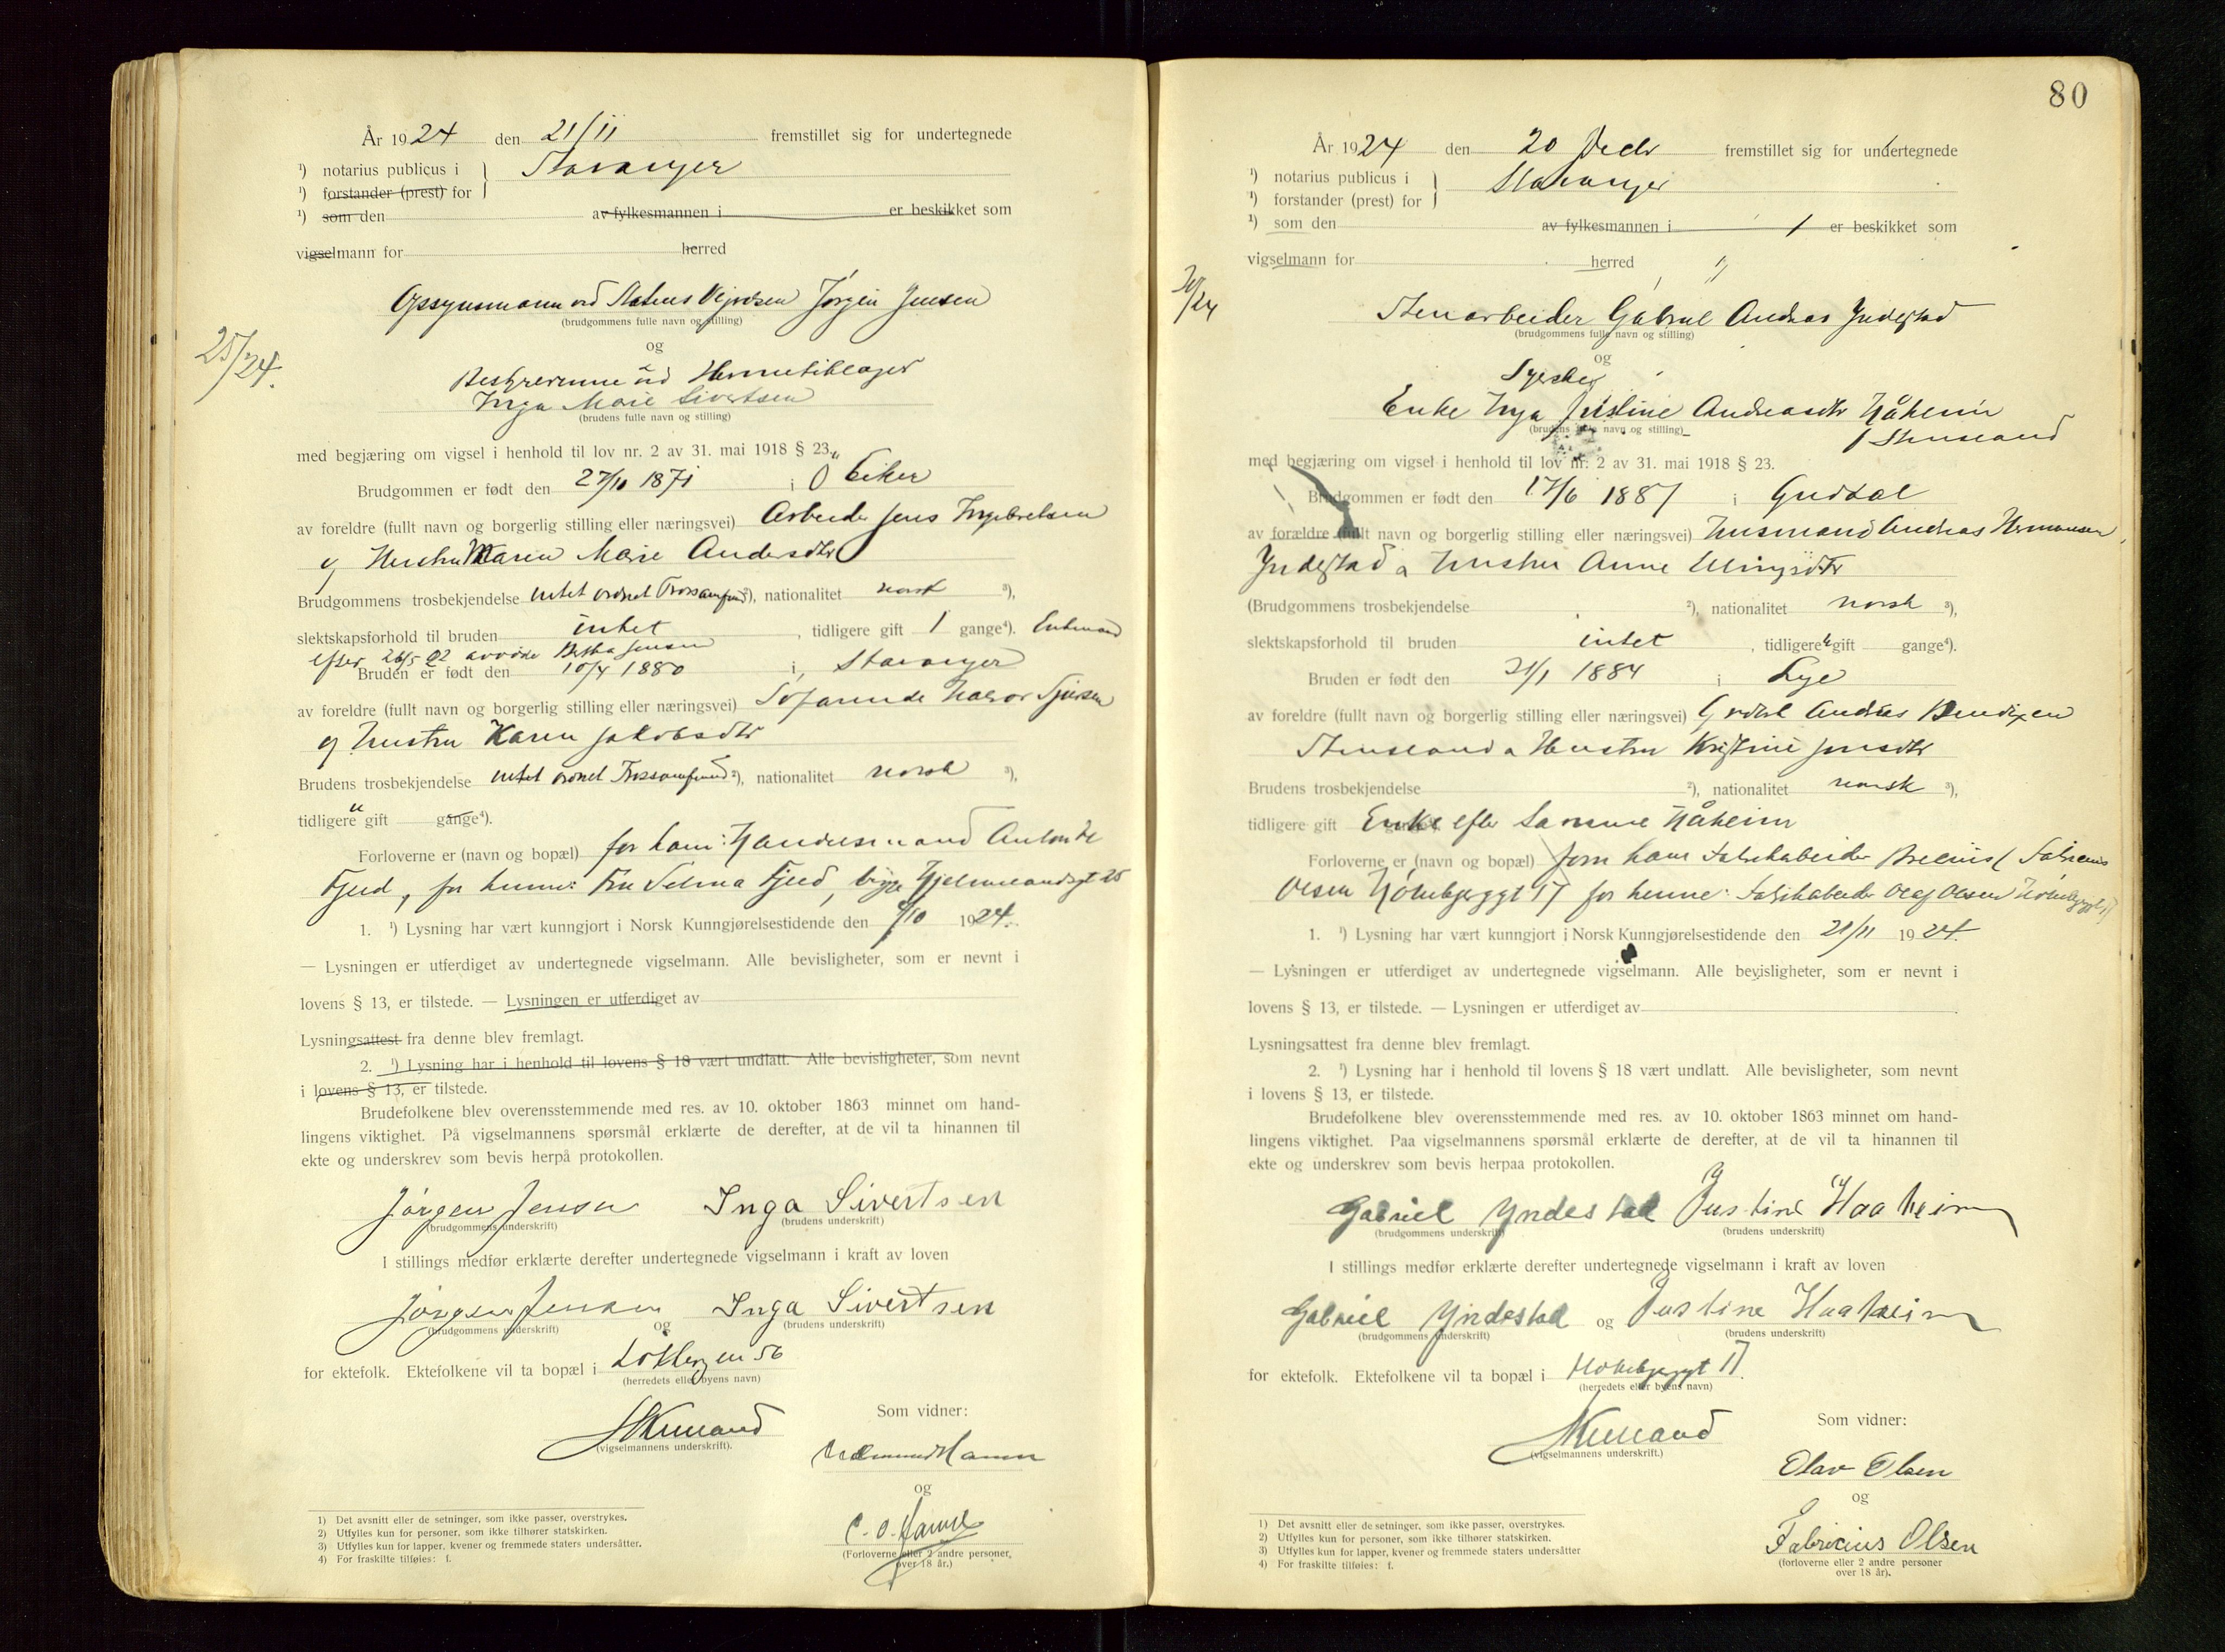 År 1924 den 21/11 fremstillet sig for undertegnede
¹) notarius publicus i } Stavanger
¹) forstander (prest) for
¹) som den av fylkesmannen i er beskikket som
vigselmann for herred
Opsynsmann ved Statens Jørgen Jensen
(brudgommens fulle navn og stilling)
og
25/24.
Bestyrerinne ved
Inga Marie Sivertsen
(brudens fulle navn og stilling)
med begjæring om vigsel i henhold til lov nr. 2 av 31. mai 1918 § 23.
Brudgommen er født den 27/10 1871 i Ø Eiker
av foreldre (fullt navn og borgerlig stilling eller næringsvei) Arbeider Jens Ingebretsen
og Hustru Maren Marie Andersdtr
Brudgommens trosbekjendelse intet ordnet Trossamfund ²), nationalitet norsk ³),
slektskapsforhold til bruden intet, tidligere gift 1 gange⁴). Enkemand
efter 26/5 22 avdøde Jensen
Bruden er født den 10/4 1880 i Stavanger
av foreldre (fullt navn og borgerlig stilling eller næringsvei) Søfarende
og Hustru Karen Jakobsdtr
Brudens trosbekjendelse intet ordnet Trossamfund ²), nationalitet norsk ³),
tidligere gift gange⁴).
Forloverne er (navn og bopæl) for ham: Handelsmand
Fjeld, for henne: Fru Selma Fjeld, begge Hjelmelandsgt 25
1. ¹) Lysning har vært kunngjort i Norsk Kunngjørelsestidende den /10 1924.
— Lysningen er utferdiget av undertegnede vigselmann. Alle bevisligheter, som er nevnt i
lovens § 13, er tilstede. — Lysningen er utferdiget av
Lysningsattest fra denne blev fremlagt.
2. ¹) Lysning har i henhold til lovens § 18 vært undlatt. Alle bevisligheter, som nevnt
i lovens § 13, er tilstede.
Brudefolkene blev overensstemmende med res. av 10. oktober 1863 minnet om hand-
lingens viktighet. På vigselmannens spørsmål erklærte de derefter, at de vil ta hinannen til
ekte og underskrev som bevis herpå protokollen.
Jørgen Jensen Inga Sivertsen
(brudgommens underskrift) (brudens underskrift)
I stillings medfør erklærte derefter undertegnede vigselmann i kraft av loven
Jørgen Jensen og Inga Sivertsen
(brudgommens underskrift) (brudens underskrift)
for ektefolk. Ektefolkene vil ta bopæl i 56
(herredets eller byens navn)
Kielland
(vigselmannens underskrift).
Som vidner:
og
(Forloverne eller 2 andre personer,
over 18 år.)
1) Det avsnitt eller de setninger, som ikke passer, overstrykes.
2) Utfylles kun for personer, som ikke tilhører statskirken.
3) Utfylles kun for lapper, kvener og fremmede staters undersåtter.
4) For fraskilte tilføies: f.
80
År 1924 den 20 Decbr fremstillet sig for undertegnede
¹) notarius publicus i } Stavanger
¹) forstander (prest) for
¹) som den av fylkesmannen i er beskikket som
vigselmann for herred
Stenarbeider Gabriel Andreas Yndestad
(brudgommens fulle navn og stilling)
og
Syerske
Enke Inga Justine Andreasdtr Håheim
(brudens fulle navn og stilling)
f Stensland
med begjæring om vigsel i henhold til lov nr. 2 av 31. mai 1918 § 23.
Brudgommen er født den 17/6 1887 i Guddal
av forældre (fullt navn og borgerlig stilling eller næringsvei) Husmand Andreas Hermansen
Yndestad o Hustru Anne
(Brudgommens trosbekjendelse ²), nationalitet norsk ³),
slektskapsforhold til bruden intet, tidligere gift gange⁴).
Bruden er født den 21/1 1884 i Lye
av foreldre (fullt navn og borgerlig stilling eller næringsvei) Grdbr Andreas Bendixen
Stensland o Hustru Kristine Jensdtr
Brudens trosbekjendelse ²), nationalitet norsk ³),
tidligere gift Enke efter Håheim
Forloverne er (navn og bopæl) for ham Fabrikarbeider Fabricius
Olsen 17 for henne: Fabrikarbeider Olaf Olsen
1. ¹) Lysning har vært kunngjort i Norsk Kunngjørelsestidende den 21/11 1924.
— Lysningen er utferdiget av undertegnede vigselmann. Alle bevisligheter, som er nevnt i
lovens § 13, er tilstede. — Lysningen er utferdiget av
Lysningsattest fra denne blev fremlagt.
2. ¹) Lysning har i henhold til lovens § 18 vært undlatt. Alle bevisligheter, som nevnt
i lovens § 13, er tilstede.
Brudefolkene blev overensstemmende med res. av 10. oktober 1863 minnet om hand-
lingens viktighet. Paa vigselmannens spørsmål erklærte de derefter, at de vil ta hinannen til
ekte og underskrev som bevis herpaa protokollen.
Gabriel Yndestad Justine Haaheim
(brudgommens underskrift) (brudens underskrift)
I stillings medfør erklærte derefter undertegnede vigselmann i kraft av loven
Gabriel Yndestad og Justine Haaheim
(brudgommens underskrift) (brudens underskrift)
for ektefolk. Ektefolkene vil ta bopæl i 17.
(herredets eller byens navn)
Kielland
(vigselmannens underskrift.)
Som vidner:
Olav Olsen
og
Fabricius Olsen
(forloverne eller 2 andre personer
over 18 år).
1) Det avsnitt eller de setninger, som ikke passer, overstrykes.
2) Utfylles kun for personer, som ikke tilhører statskirken.
3) Utfylles kun for lapper, kvener og fremmede staters undersåtter
4) For fraskilte tilføies: f.